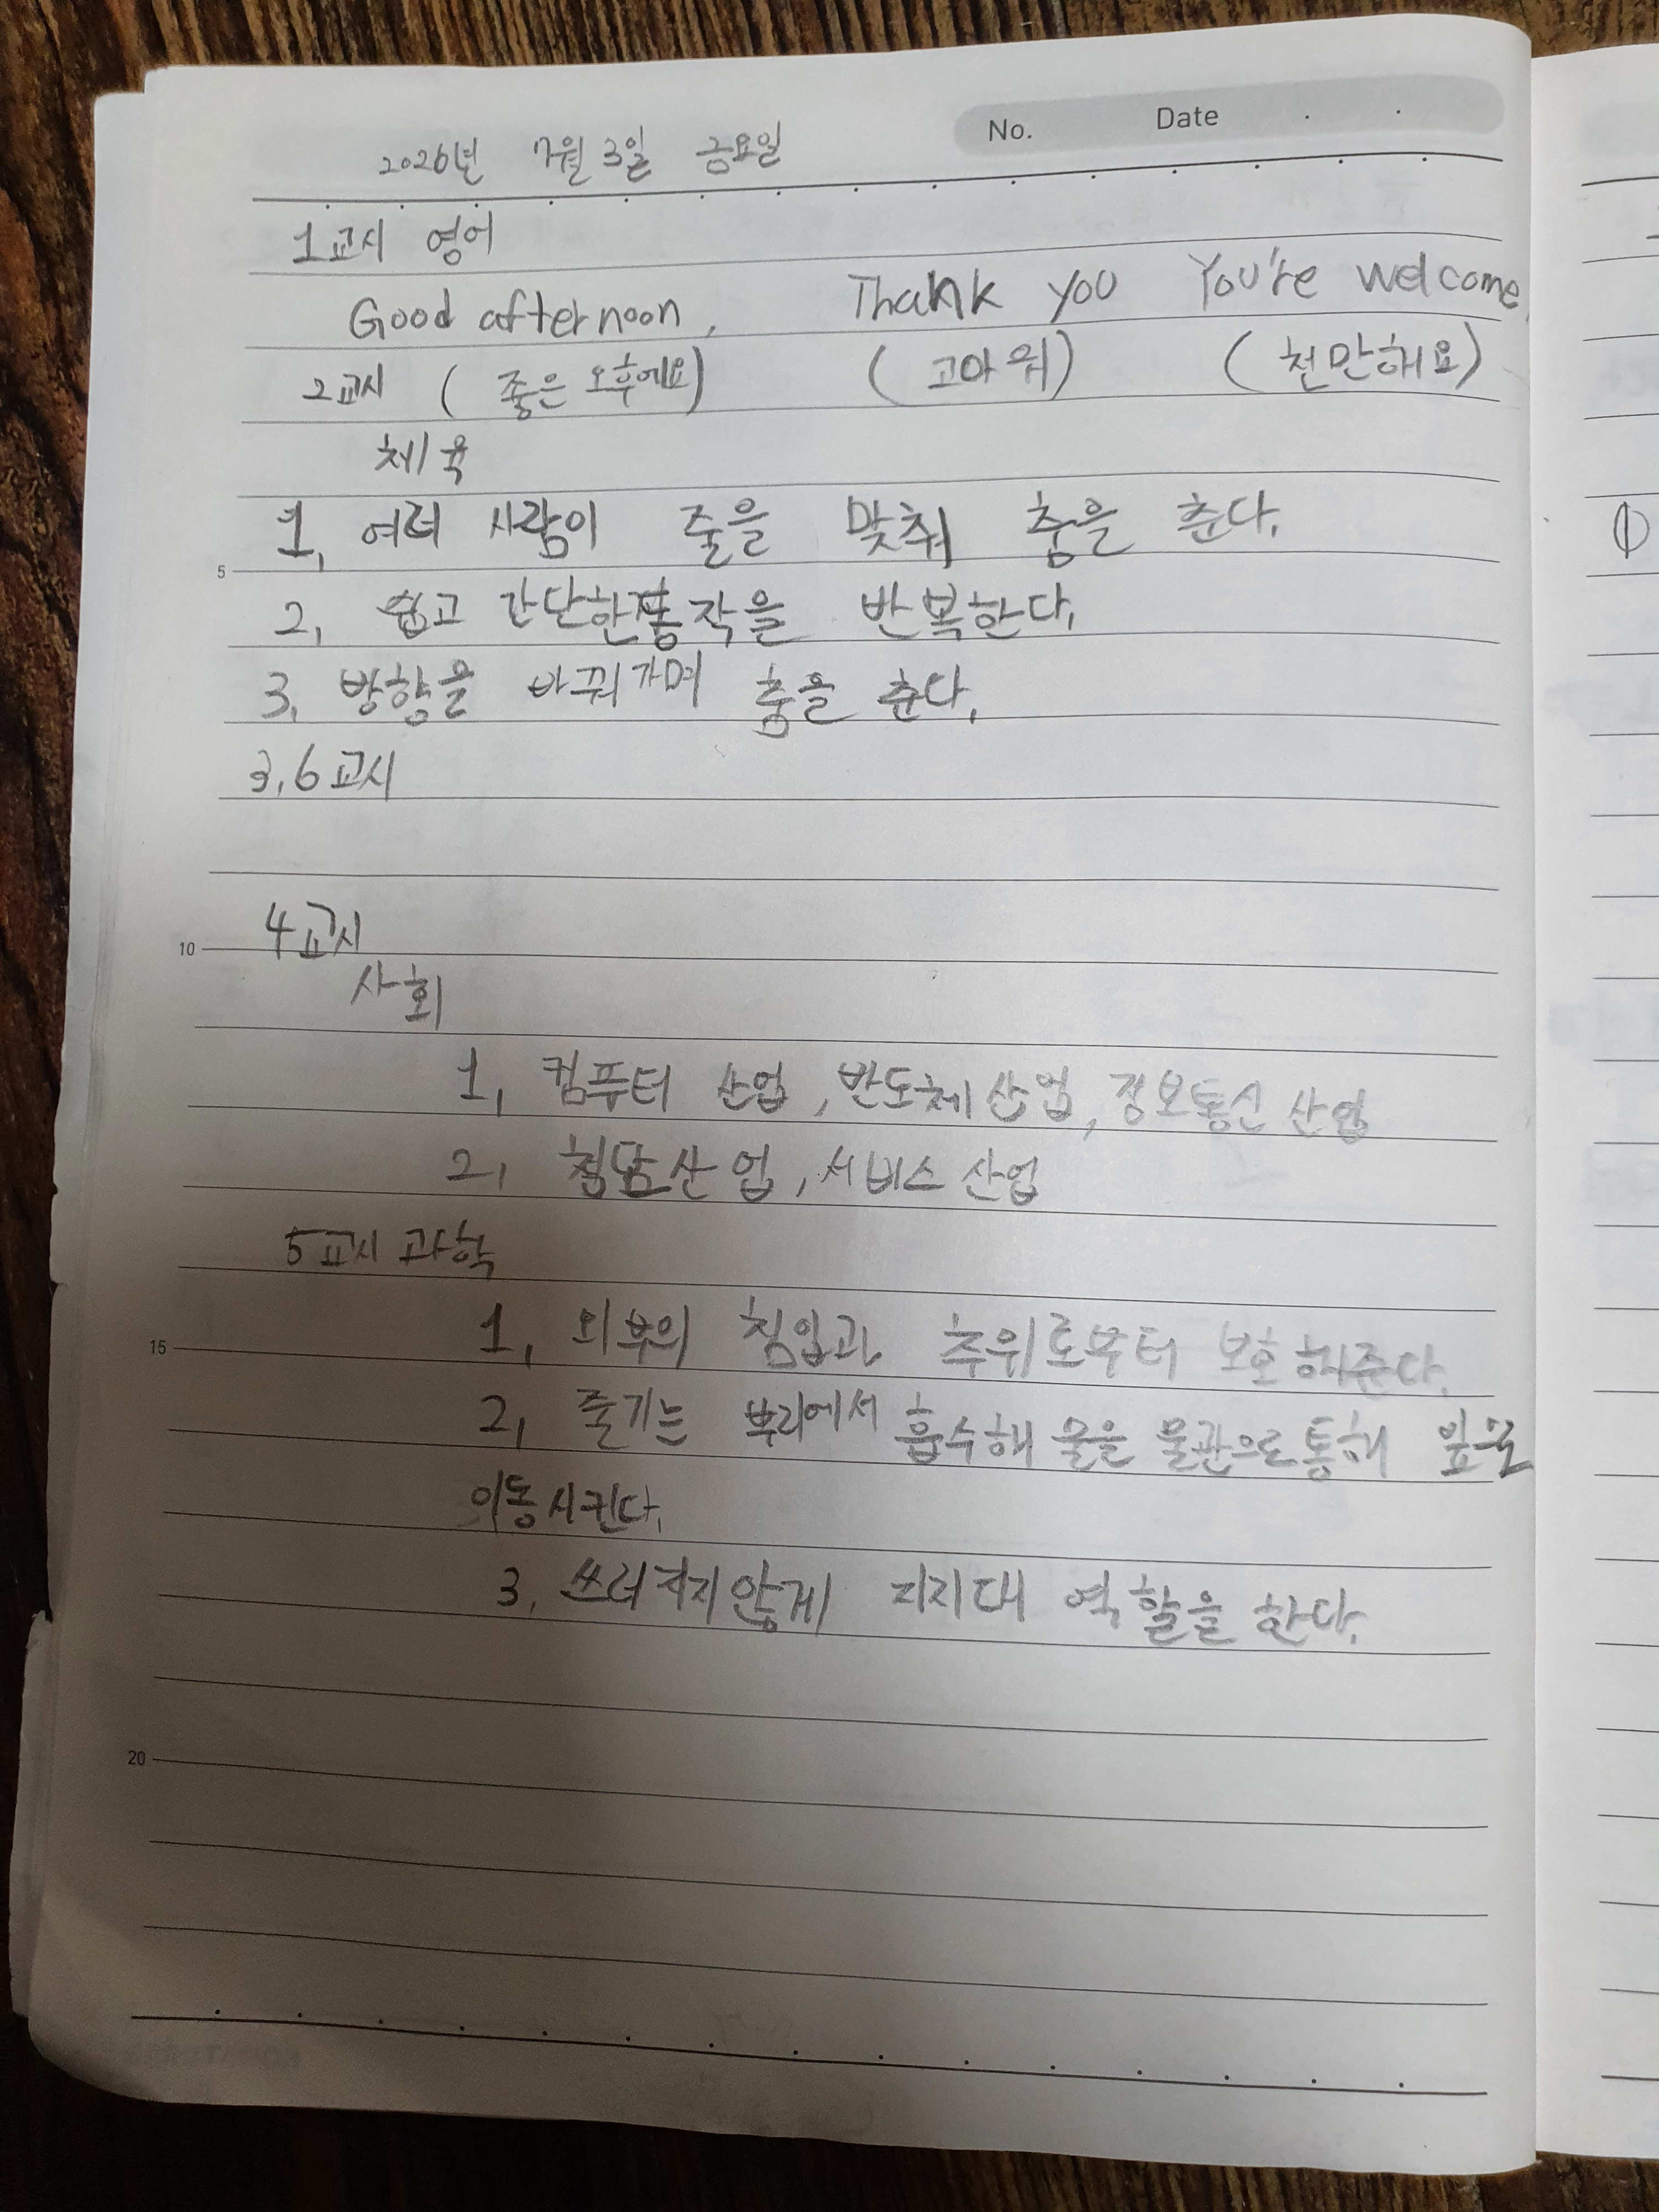 No. Date
2026년 7월 3일 금요일
1교시 영어
Good afternoon, Thank you You're welcome.
2교시 (좋은 오후에요) (고마워) (천만해요)
체육
1, 여러 사람이 줄을 맞춰 춤을 춘다.
5
2, 쉽고 간단한 동작을 반복한다.
3, 방향을 바꿔가며 춤을 춘다.
3,6교시
4교시
10
사회
1, 컴퓨터 산업, 반도체 산업, 정보통신 산업
2, 첨담산업, 서비스 산업
5교시 과학
1, 외부의 침입과 추위로부터 보호해준다.
15
2, 줄기는 뿌리에서 흡수해 물을 물관으로 통해
이동시킨다.
3, 쓰러지지않게 지지대 역할을 한다.
20